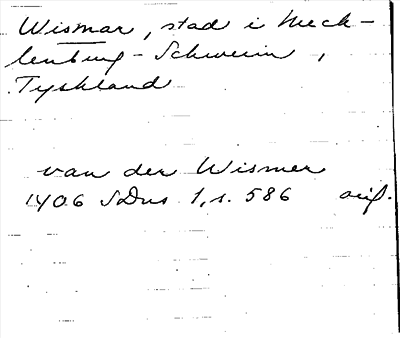 Wismar, stad i Meck-
lenburg-Schwerin,
Tyskland
van der Wismer
1406 SDns 1, s. 586